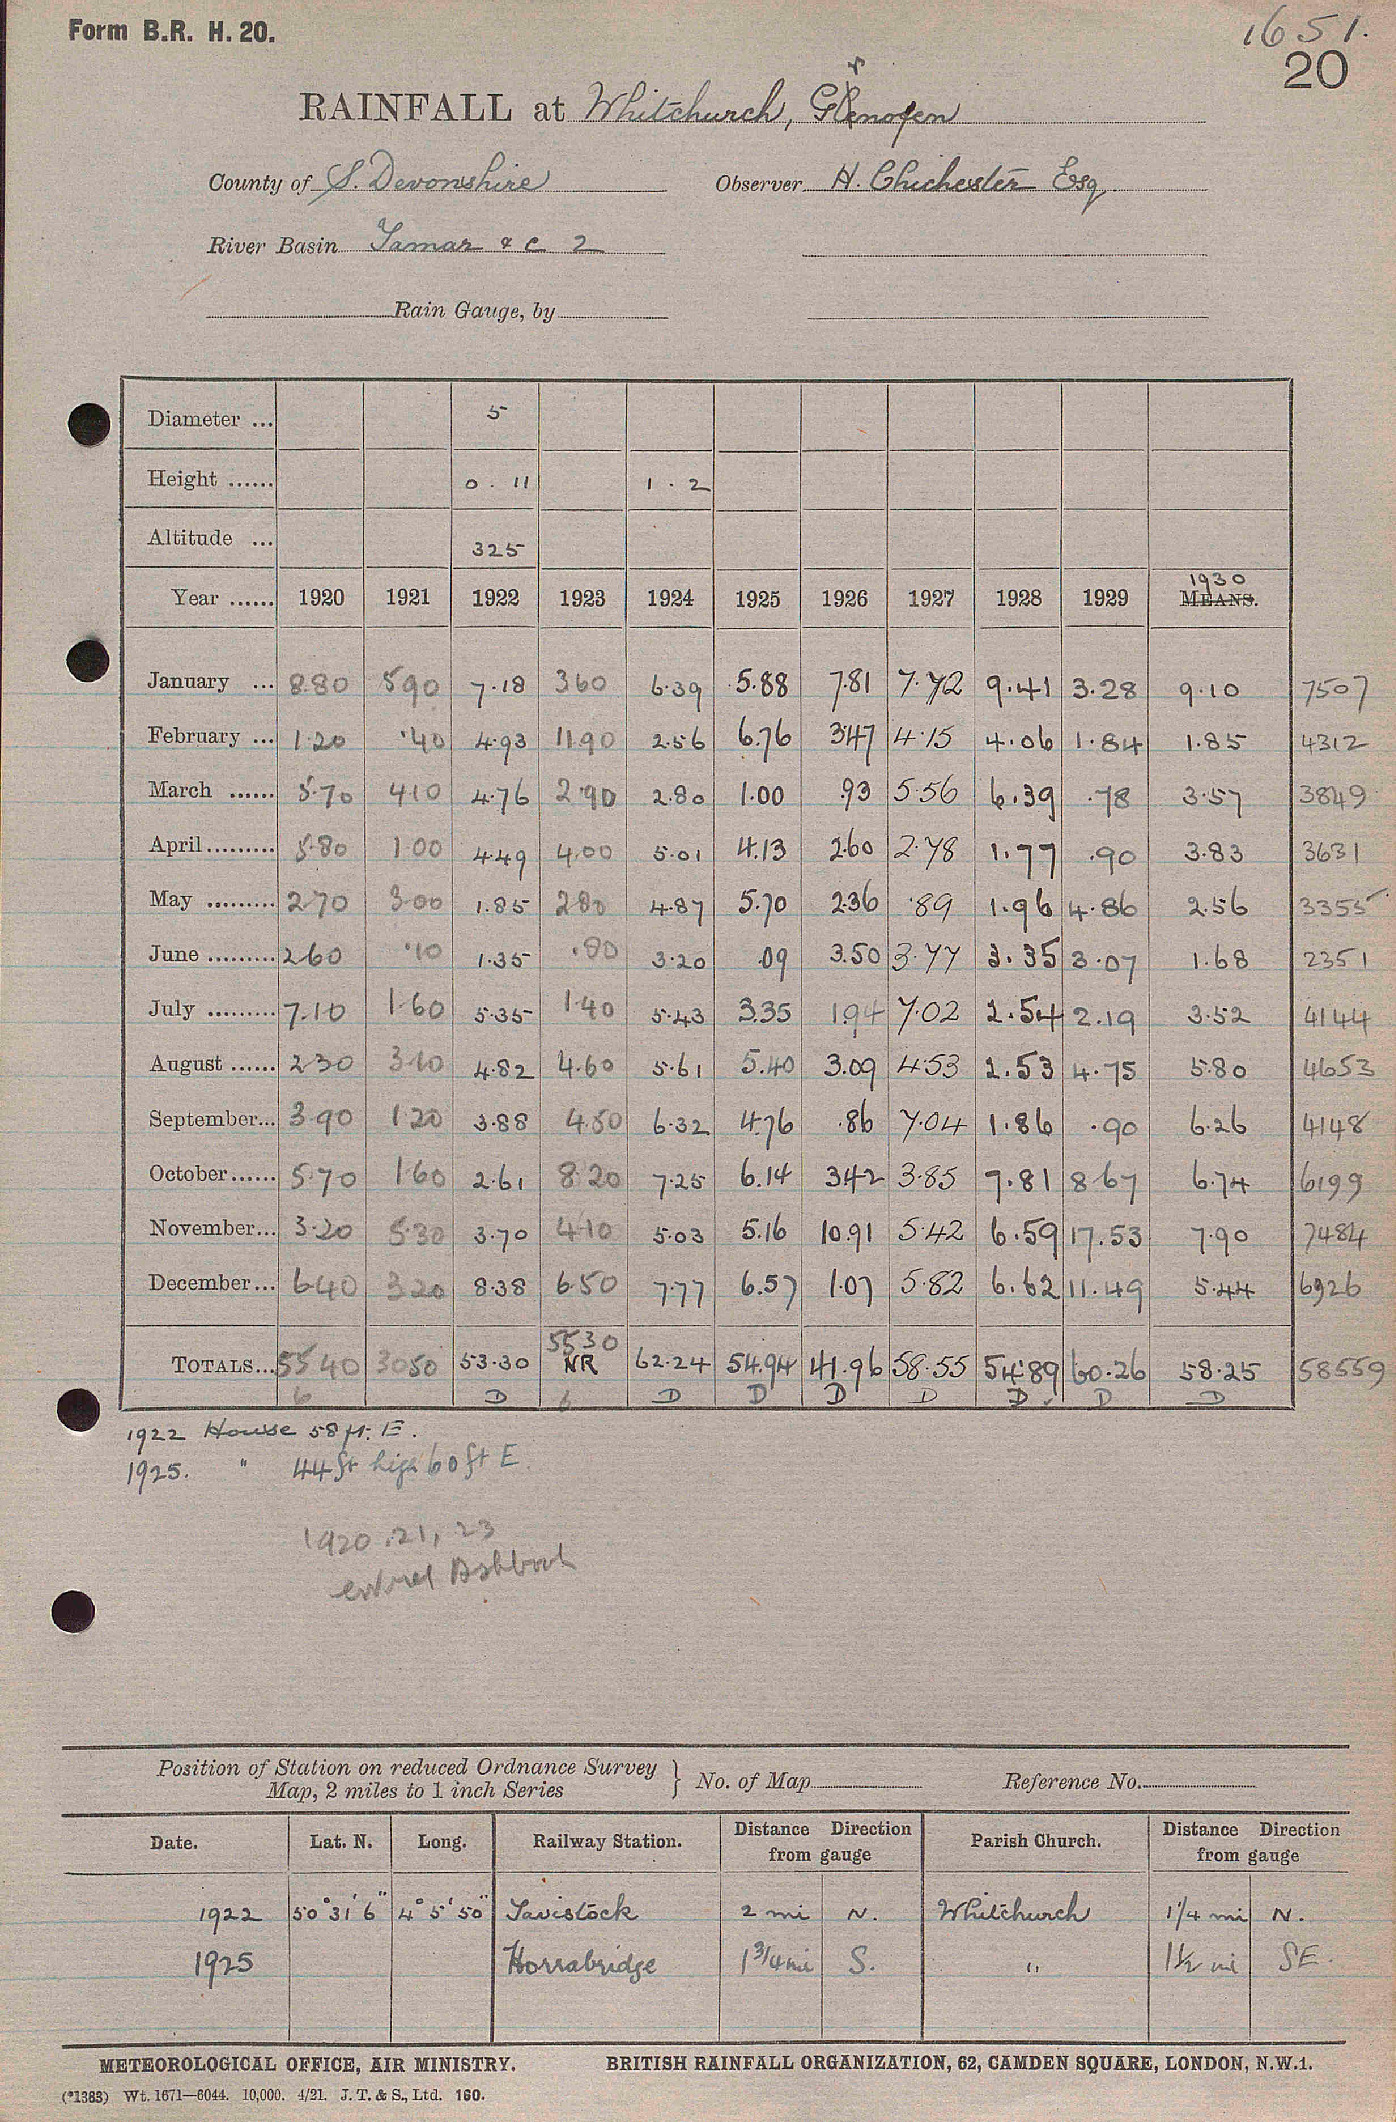 Form B.R. H. 20.
1651.
20
RAINFALL at Whitchurch,
County of S. Devonshire Observer H. Chichester Esq
River Basin Tamar & c 2
Rain Gauge, by
Diameter ... 5
Height ...... 0 . 11 1 . 2
Altitude ... 325
1930
Year ...... 1920 1921 1922 1923 1924 1925 1926 1927 1928 1929 MEANS.
January ... 8.80 590 7.18 360 6.39 5.88 7.81 7.72 9.41 3.28 9.10 7507
February ... 1.20 .40 4.93 11.90 2.56 6.76 3.47 4.15 4.06 1.84 1.85 4312
March ...... 5.70 410 4.76 2.90 2.80 1.00 .93 5.56 6.39 .78 3.57 3849
April ......... 5.80 1.00 4.49 4.00 5.01 4.13 2.60 2.78 1.77 .90 3.83 3631
May ......... 2.70 3.00 1.85 280 4.87 5.70 2.36 .89 1.96 4.86 2.56 3355
June ......... 2.60 .10 1.35 .80 3.20 .09 3.50 3.77 3.35 3.07 1.68 2351
July ......... 7.10 1.60 5.35 1.40 5.43 3.35 1.94 7.02 2.54 2.19 3.52 4144
August ...... 2.30 3.10 4.82 4.60 5.61 5.40 3.09 4.53 2.53 4.75 5.80 4653
September... 3.90 1.20 3.88 4.50 6.32 4.76 .86 7.04 1.86 .90 6.26 4148
October ...... 5.70 1.60 2.61 8.20 7.25 6.14 3.42 3.85 7.81 8.67 6.74 6199
November... 3.20 5.30 3.70 4.10 5.03 5.16 10.91 5.42 6.59 17.53 7.90 7484
December... 6.40 3.20 8.38 6.50 7.77 6.57 1.07 5.82 6.62 11.49 5.44 6926
55 30
TOTALS... 55 40 30 50 53.30 NR 62.24 54.94 41.96 58.55 54.89 60.26 58.25 58559
6 D 6 D D D D D D D
1922 House 58 ft. E.
1925. " 44 ft high 60 ft E.
1920, 21, 23
entered
Position of Station on reduced Ordnance Survey
Map, 2 miles to 1 inch Series } No. of Map Reference No.
Date. Lat. N. Long. Railway Station. Distance Direction from gauge Parish Church. Distance Direction from gauge
1922 50° 31' 6" 4° 5' 50" Tavistock 2 mi N. Whitchurch 1 1/4 mi N.
1925 Horrabridge 1 3/4 mi S. " 1 1/2 mi SE.
METEOROLOGICAL OFFICE, AIR MINISTRY. BRITISH RAINFALL ORGANIZATION, 62, CAMDEN SQUARE, LONDON, N.W.1.
(*1383) Wt. 1671—6044. 10,000. 4/21. J. T. & S., Ltd. 160.